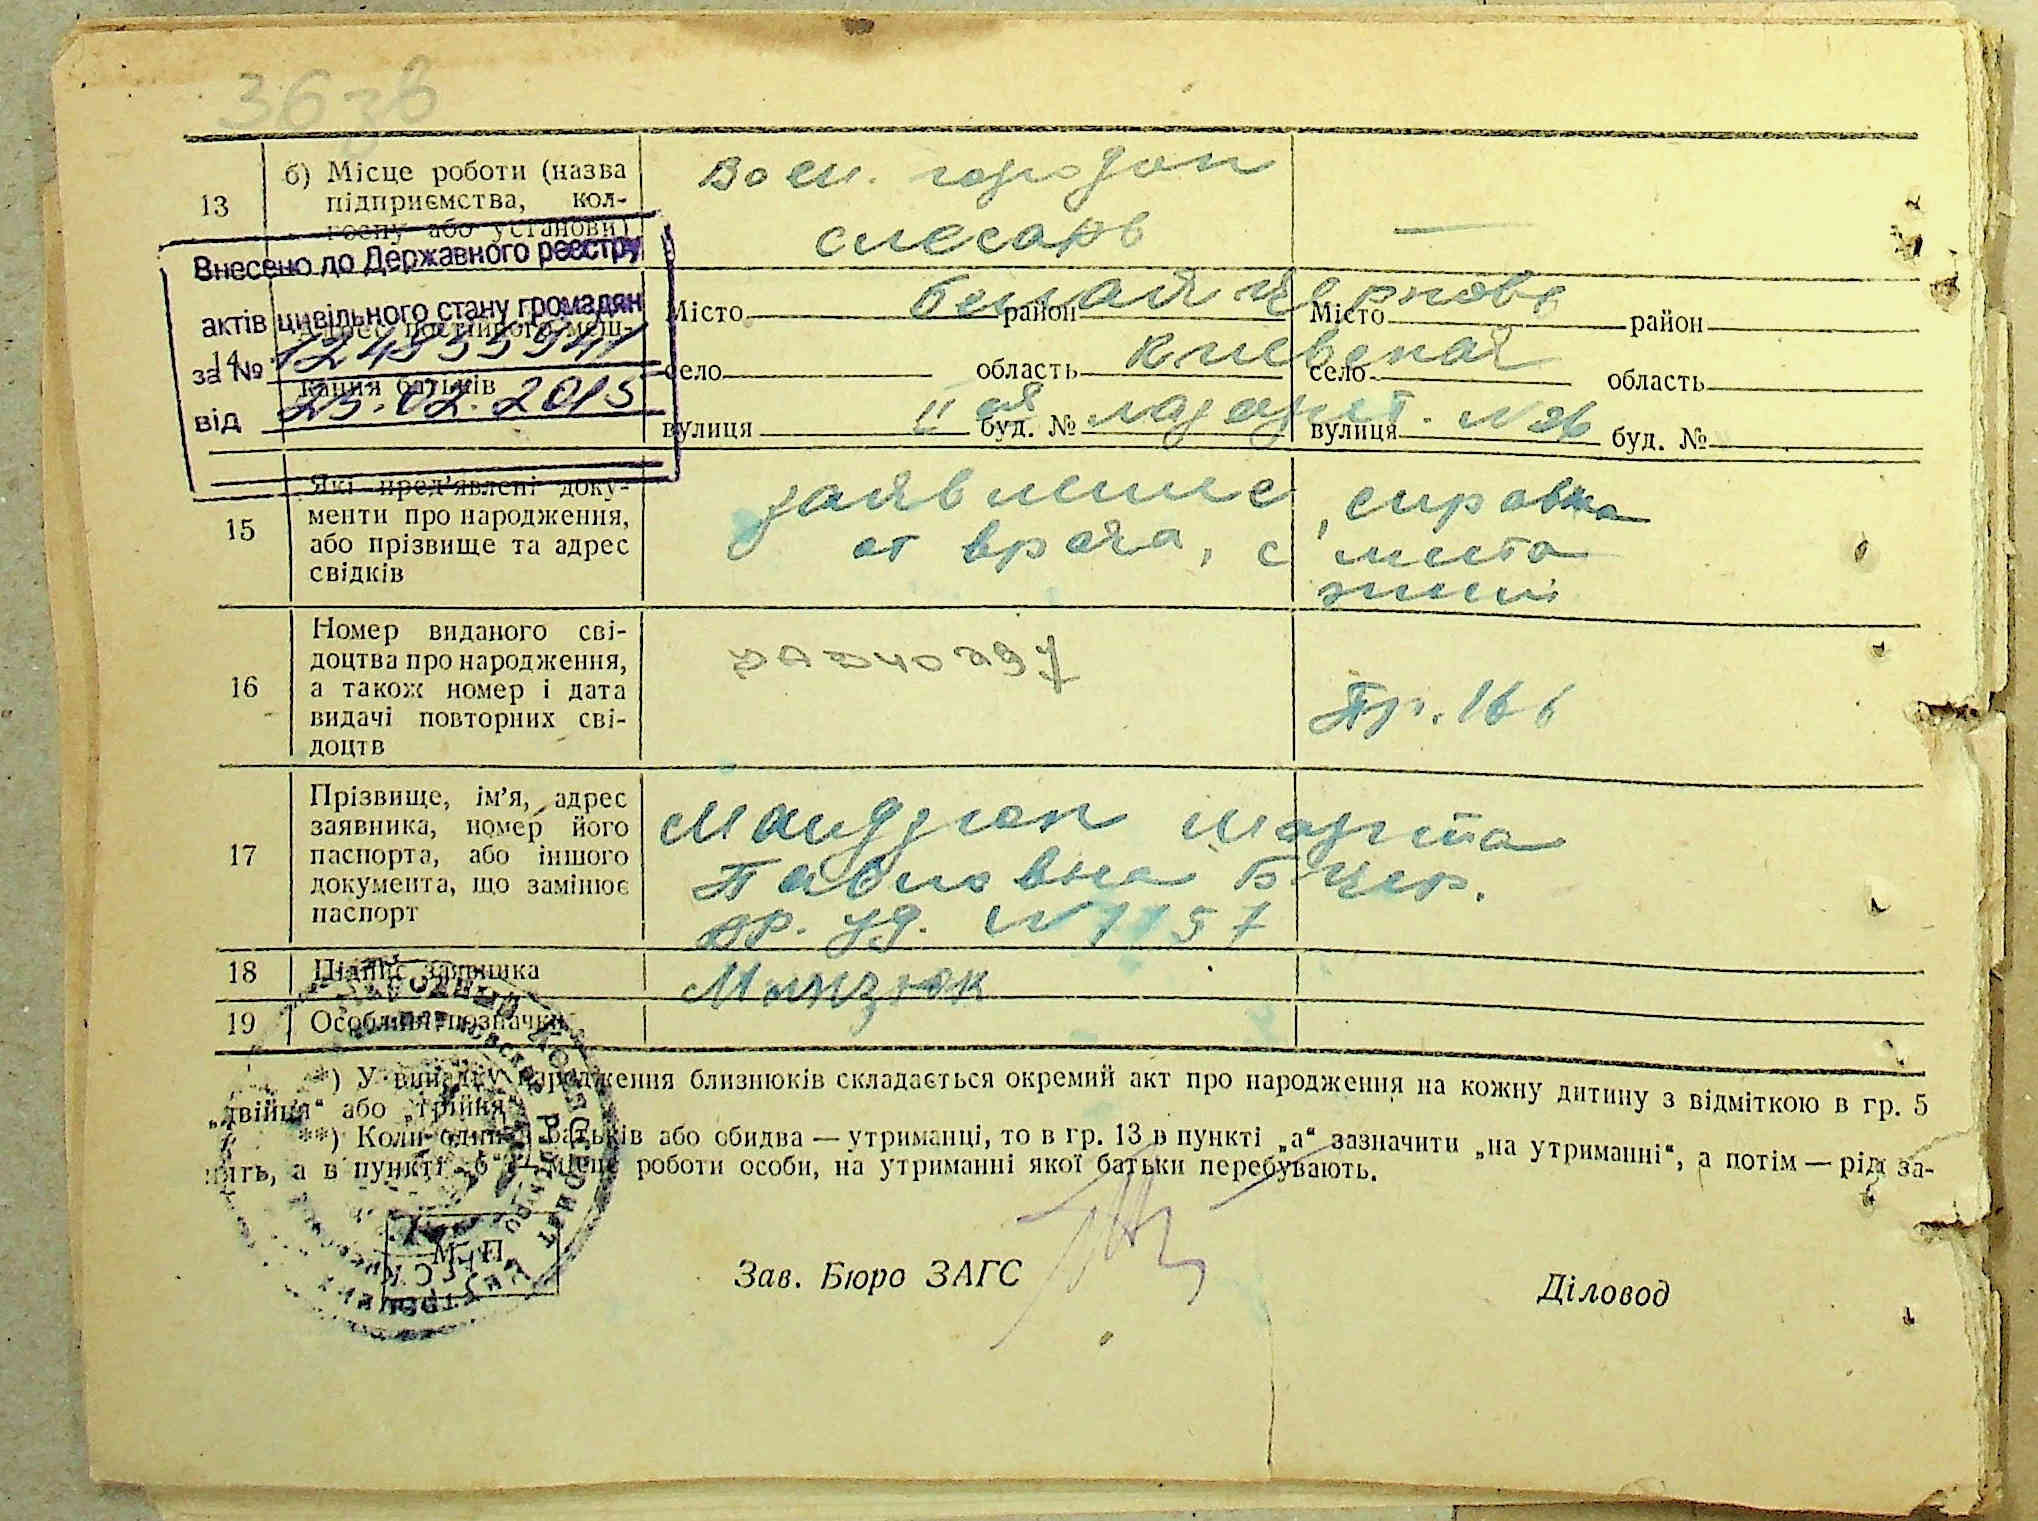 36 зв
13
б) Місце роботи (назва
підприємства, кол-
госпу або установи)
Воен. городок
слесарь
—
Внесено до Державного реєстру
актів цивільного стану громадян
за №
від 25.02.2015
14
Адрес постійного меш-
кання батьків
Місто Белая Церковь район
село область Киевская
вулиця буд. № N 26
Місто район
село область
вулиця буд. №
15
Які пред'явлені доку-
менти про народження,
або прізвище та адрес
свідків
заявление, справка
от врача, с места
16
Номер виданого сві-
доцтва про народження,
а також номер і дата
видачі повторних сві-
доцтв
Пр. 166
17
Прізвище, ім'я, адрес
заявника, номер його
паспорта, або іншого
документа, що замінює
паспорт
Мандзюк Марта
Павловна Б. Цер.
вр. уд. N 1157
18
Підпис заявника
Мандзюк
19
Особливі позначки
*) У випадку народження близнюків складається окремий акт про народження на кожну дитину з відміткою в гр. 5
„двійня“ або „трійня“.
**) Коли один з батьків або обидва — утриманці, то в гр. 13 в пункті „а“ зазначити „на утриманні“, а потім — рід за-
нять, а в пункті „б“ — місце роботи особи, на утриманні якої батьки перебувають.
М. П.
Зав. Бюро ЗАГС
Діловод